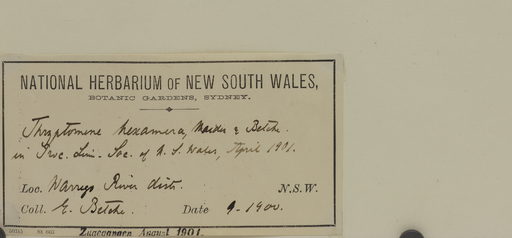 NATIONAL HERBARIUM OF NEW SOUTH WALES,
BOTANIC GARDENS, SYDNEY.
Thryptomene hexamera, Maiden & Betche.
in Proc. Linn. Soc. of N. S. Wales, April 1901.
Loc. River distr. N.S.W.
Coll. E. Betche. Date 9-1900.
August 1901.